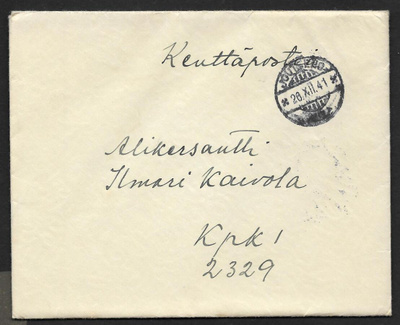 Kenttäpostia
28.XII.41
Alikersantti
Ilmari Kaivola
Kpk 1
2329